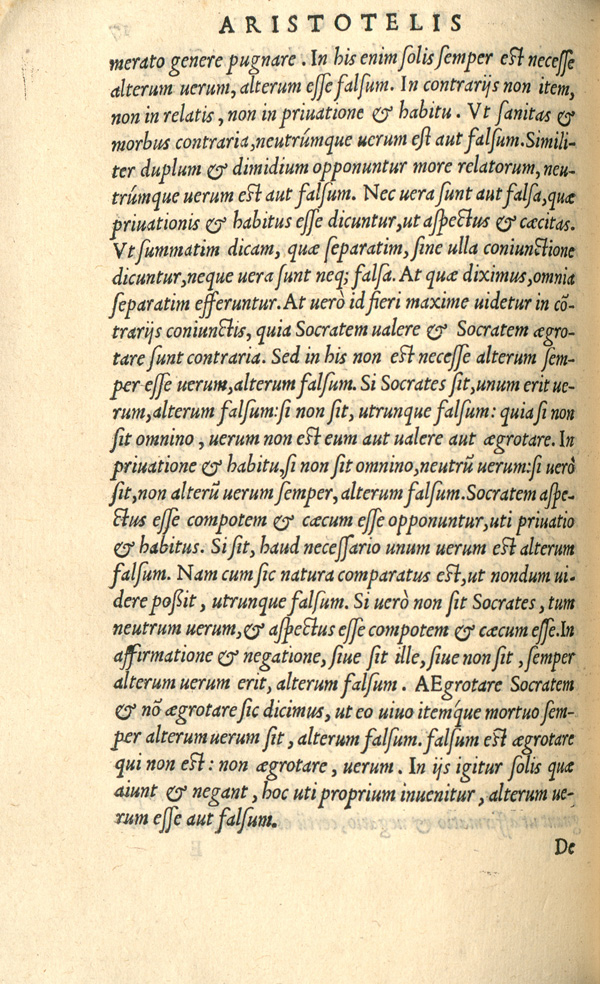 ARISTOTELIS
merato genere pugnare. In his enim solis semper est necesse
alterum uerum, alterum esse falsum. In contrarijs non item,
non in relatis, non in priuatione & habitu. Vt sanitas &
morbus contraria, neutrúmque uerum est aut falsum. Simili-
ter duplum & dimidium opponuntur more relatorum, neu-
trúmque uerum est aut falsum. Nec uera sunt aut falsa, quæ
priuationis & habitus esse dicuntur, ut aspectus & cæcitas.
Vt summatim dicam, quæ separatim, sine ulla coniunctione
dicuntur, neque uera sunt neq; falsa. At quæ diximus, omnia
separatim efferuntur. At uerò id fieri maxime uidetur in cõ-
trarijs coniunctis, quia Socratem ualere & Socratem ægro-
tare sunt contraria. Sed in his non est necesse alterum sem-
per esse uerum, alterum falsum. Si Socrates sit, unum erit ue-
rum, alterum falsum: si non sit, utrunque falsum: quia si non
sit omnino, uerum non est eum aut ualere aut ægrotare. In
priuatione & habitu, si non sit omnino, neutrũ uerum: si uerò
sit, non alterũ uerum semper, alterum falsum. Socratem aspe-
ctus esse compotem & cæcum esse opponuntur, uti priuatio
& habitus. Si sit, haud necessario unum uerum est alterum
falsum. Nam cum sic natura comparatus est, ut nondum ui-
dere poßit, utrunque falsum. Si uerò non sit Socrates, tum
neutrum uerum, & aspectus esse compotem & cæcum esse. In
affirmatione & negatione, siue sit ille, siue non sit, semper
alterum uerum erit, alterum falsum. AEgrotare Socratem
& nõ ægrotare sic dicimus, ut eo uiuo itemq́ue mortuo sem-
per alterum uerum sit, alterum falsum. falsum est ægrotare
qui non est: non ægrotare, uerum. In ijs igitur solis quæ
aiunt & negant, hoc uti proprium inuenitur, alterum ue-
rum esse aut falsum.
De